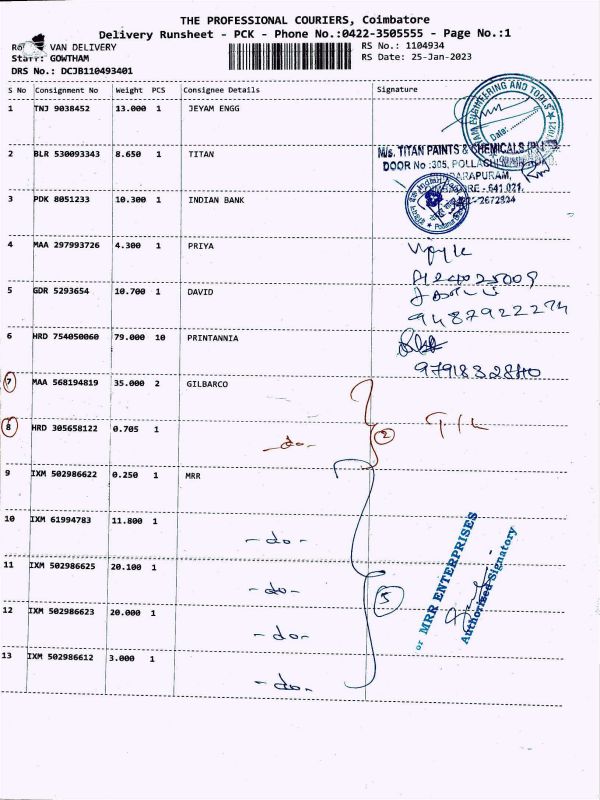 THE PROFESSIONAL COURIERS, Coimbatore
Delivery Runsheet - PCK - Phone No.:0422-3505555 - Page No.:1
VAN DELIVERY
RS No.: 1104934
Staff: GOWTHAM
RS Date: 25-Jan-2023
DRS No.: DCJB110493401
S No Consignment No Weight PCS Consignee Details Signature
1 TNJ 9038452 13.000 1 JEYAM ENGG
AM ENGINEERING AND TOOLS
Date:
2 BLR 530093343 8.650 1 TITAN
M/s. TITAN PAINTS & CHEMICALS (P) LTD
DOOR No :305, POLLACHI
3 PDK 8051233 10.300 1 INDIAN BANK
641 021.
2672824
4 MAA 297993726 4.300 1 PRIYA
5 GDR 5293654 10.700 1 DAVID
9487922274
6 HRD 754050060 79.000 10 PRINTANNIA
7 MAA 568194819 35.000 2 GILBARCO
8 HRD 305658122 0.705 1
-do- 2
9 IXM 502986622 0.250 1 MRR
10 IXM 61994783 11.800 1
-do-
11 IXM 502986625 20.100 1
-do- 5
12 IXM 502986623 20.000 1
-do-
13 IXM 502986612 3.000 1
-do-
or MRR ENTERPRISES
Authorised Signatory